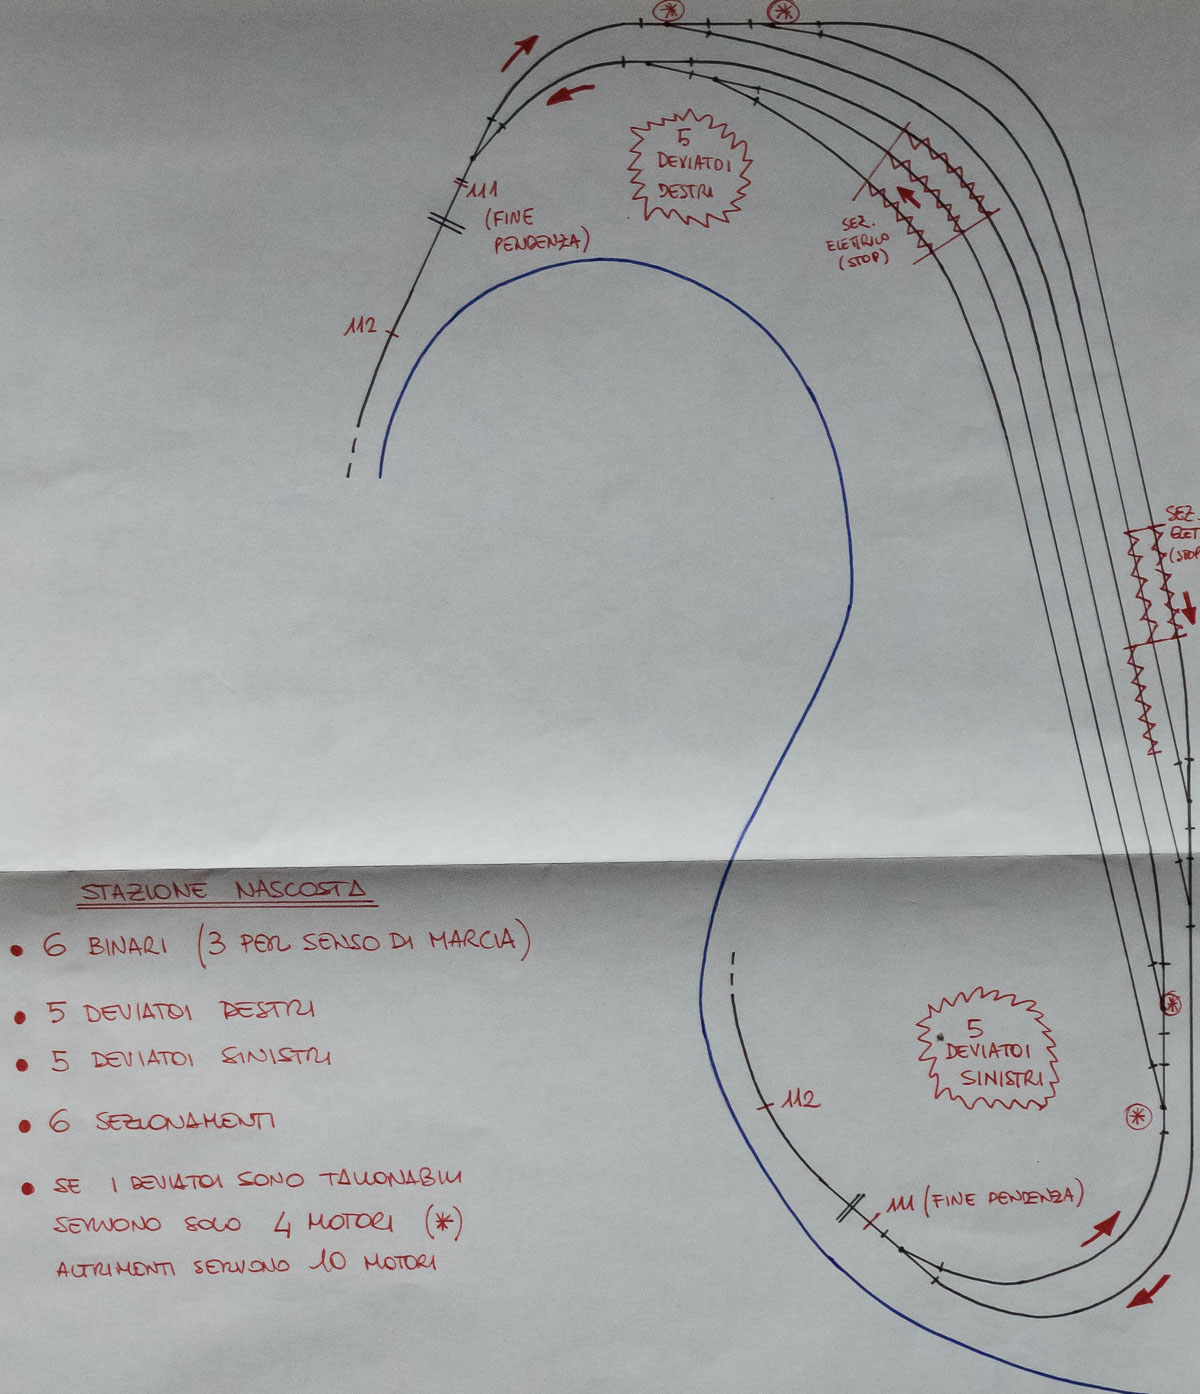 5
DEVIATOI
DESTRI
111
(FINE
PENDENZA)
SEZ.
ELETTRICO
(STOP)
112
SEZ.
ELET
(STOP
STAZIONE NASCOSTA
• 6 BINARI (3 PER SENSO DI MARCIA)
• 5 DEVIATOI DESTRI
• 5 DEVIATOI SINISTRI
• 6 SEZIONAMENTI
• SE I DEVIATOI SONO TALLONABILI
SERVONO SOLO 4 MOTORI (*)
ALTRIMENTI SERVONO 10 MOTORI
5
DEVIATOI
SINISTRI
112
111 (FINE PENDENZA)